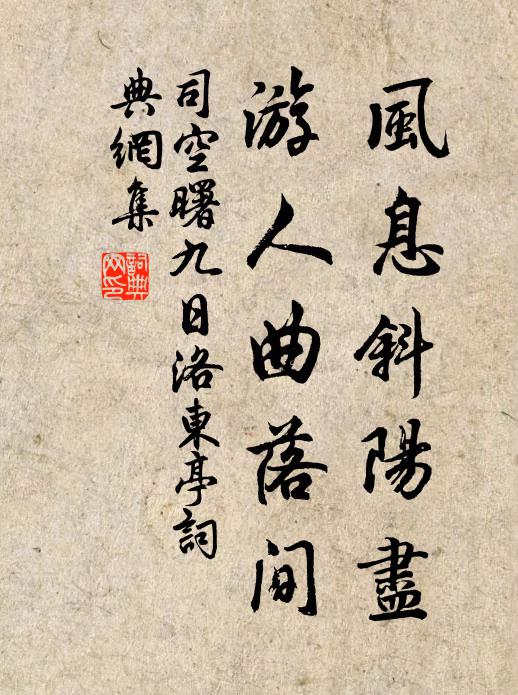 風息斜陽盡
游人曲落間
司空曙九日洛東亭詞
典網集
詞典
网印